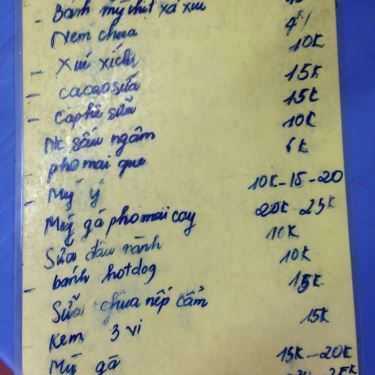 - Bánh mỳ thịt xá xíu
Nem chua 4k/
- Xúc xích 10k
- cacao sữa 15k
- Caphê sữa 15k
Nc sấu ngâm 10k
phomai que 6k
- Mỳ ý 10k-15-20
Mỳ gà phomai cay 20k-25k
Sữa đậu nành 10k
- bánh hotdog 10k
Sữa chua nếp cẩm 15k
Kem 3 vị 15k
Mỳ gà 15k-20k